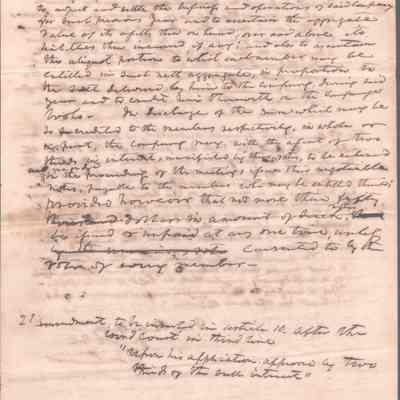 to adjust and settle the business and operations of said company
for such previous year and to ascertain the aggregate
value of its assets then on hand, over and above its
liabilities then incurred if any; and also to ascertain
the aliquot portions to which each member may be
entitled in such nett aggregate, in proportions to
the delivered by him to the company during said
year and to credit him therewith on the company's
books. In discharge of the sum which may be
so credited to the members respectively, in whole or
in part, the company may, with the assent of two
thirds in interest, manifested by their vote, to be entered
on the proceedings of the meeting, issue their negotiable
notes, payable to the members who may be entitled thereto;
provided however that not more than
dollars in amount of such
be issued & unpaid at any one time, unless
consented to by the
vote of every member.
2d amendment, to be inserted in article 10. after the
word Court in third line
"Upon his application approved by two
thirds of the interest"